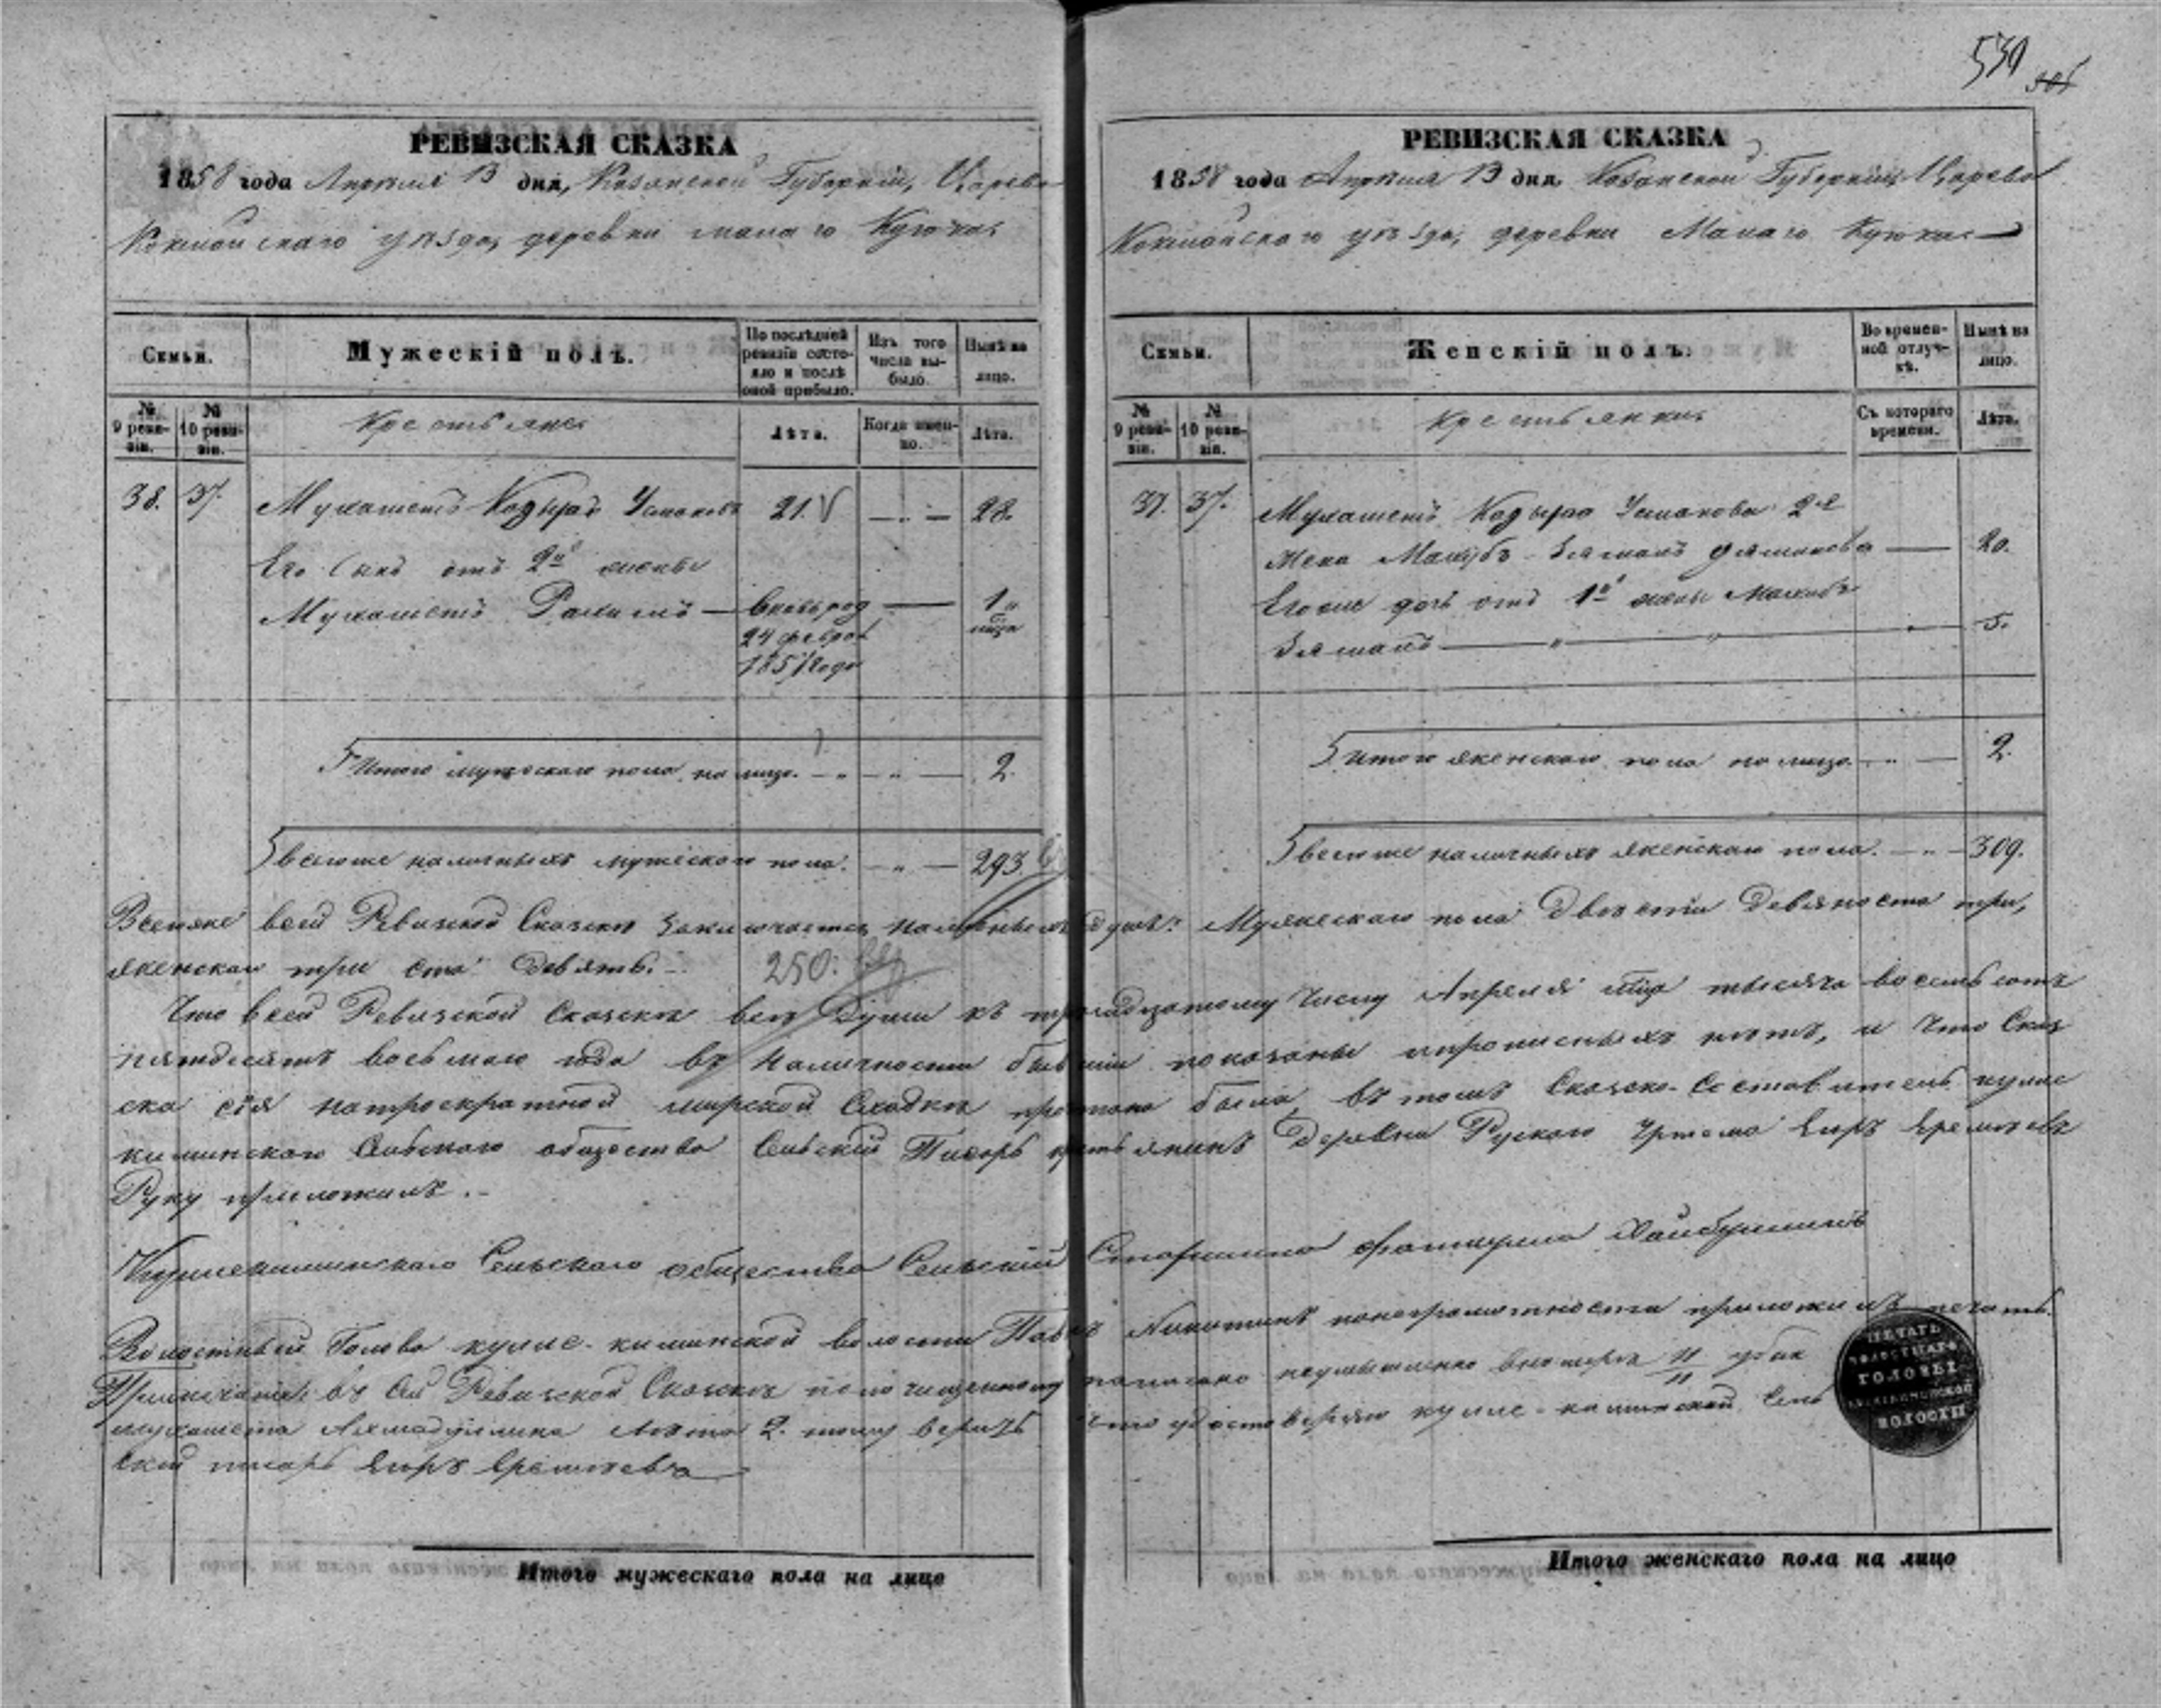 530
РЕВИЗСКАЯ СКАЗКА
1858 года Апреля 13 дня, Казанской Губернии, Царево
Кокшайскаго уезда, деревни малаго Кугюка
Семьи.
Мужескій полъ.
По последней ревизіи состояло и после оной прибыло.
Изъ того числа выбыло.
Ныне на лицо.
№ 9 ревизіи.
№ 10 ревизіи.
Крестьяне
Лѣта.
Когда именно.
Лѣта.
38. 37. Мухаметъ Кадыръ Усмановъ 21. 28.
Его сынъ отъ 2й жены
Мухаметъ Рахимъ — вновь род — 1
24 февраля
1857 года
Итого мужескаго пола на лицо. — 2.
всего же наличныхъ мужескаго пола. — 293.
РЕВИЗСКАЯ СКАЗКА
1858 года Апреля 13 дня, Казанской Губерніи, Царево
Кокшайскаго уезда, деревни Малаго Кугюка
Семьи.
Женскій полъ.
Во временной отлучкѣ.
Нынѣ на лицо.
№ 9 ревизіи.
№ 10 ревизіи.
Крестьянки
Съ котораго времени.
Лѣта.
37. 37. Мухаметъ Кадыра Усманова 2я
жена — 20.
Его же дочь отъ 1й жены
— 5.
Итого женскаго пола на лицо. — 2.
всего же наличныхъ женскаго пола. — 309.
всей Ревизской Сказке заключается наличныхъ душъ: Мужескаго пола Двести Девяносто три,
женскаго три ста девять. 250.
Что всей Ревизской Сказке все Души къ тринадцатому числу Апреля мца тысяча восемьсотъ
пятдесятъ восьмаго года въ наличности бывшіи показаны и прописныхъ нетъ, и что Сказ
ска сія на троекратной мирской Сходке читана была, въ томъ Сказко-Составитель кулле
киминскаго Сельскаго общества Сельскій Писарь крестьянинъ Деревни Рускаго Уртема Егоръ Еремеевъ
Руку приложилъ.
Куллекиминскаго Сельскаго общества Сельскій Старшина Фаткулла Хайбуллинъ
Волостный Голова кулле-киминской волости Павелъ Никитинъ по неграмотности приложилъ печать.
Примечаніе: въ сей Ревизской Сказке по
лета 2. тому верить что удостоверяю кулле-киминской Сель
скій писарь Егоръ Еремеевъ
ПЕЧАТЬ
ВОЛОСТНАГО
ГОЛОВЫ
ВОЛОСТИ
Итого мужескаго пола на лицо
Итого женскаго пола на лицо